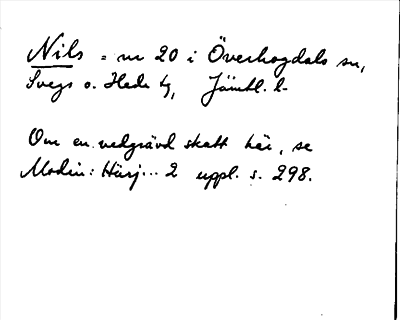 Nils = nr 20 i Överhogdals sn,
Svegs o. Hede tg, Jämtl. l-
Om en nedgrävd skatt här, se
Modin: Härj... 2 uppl. s. 298.